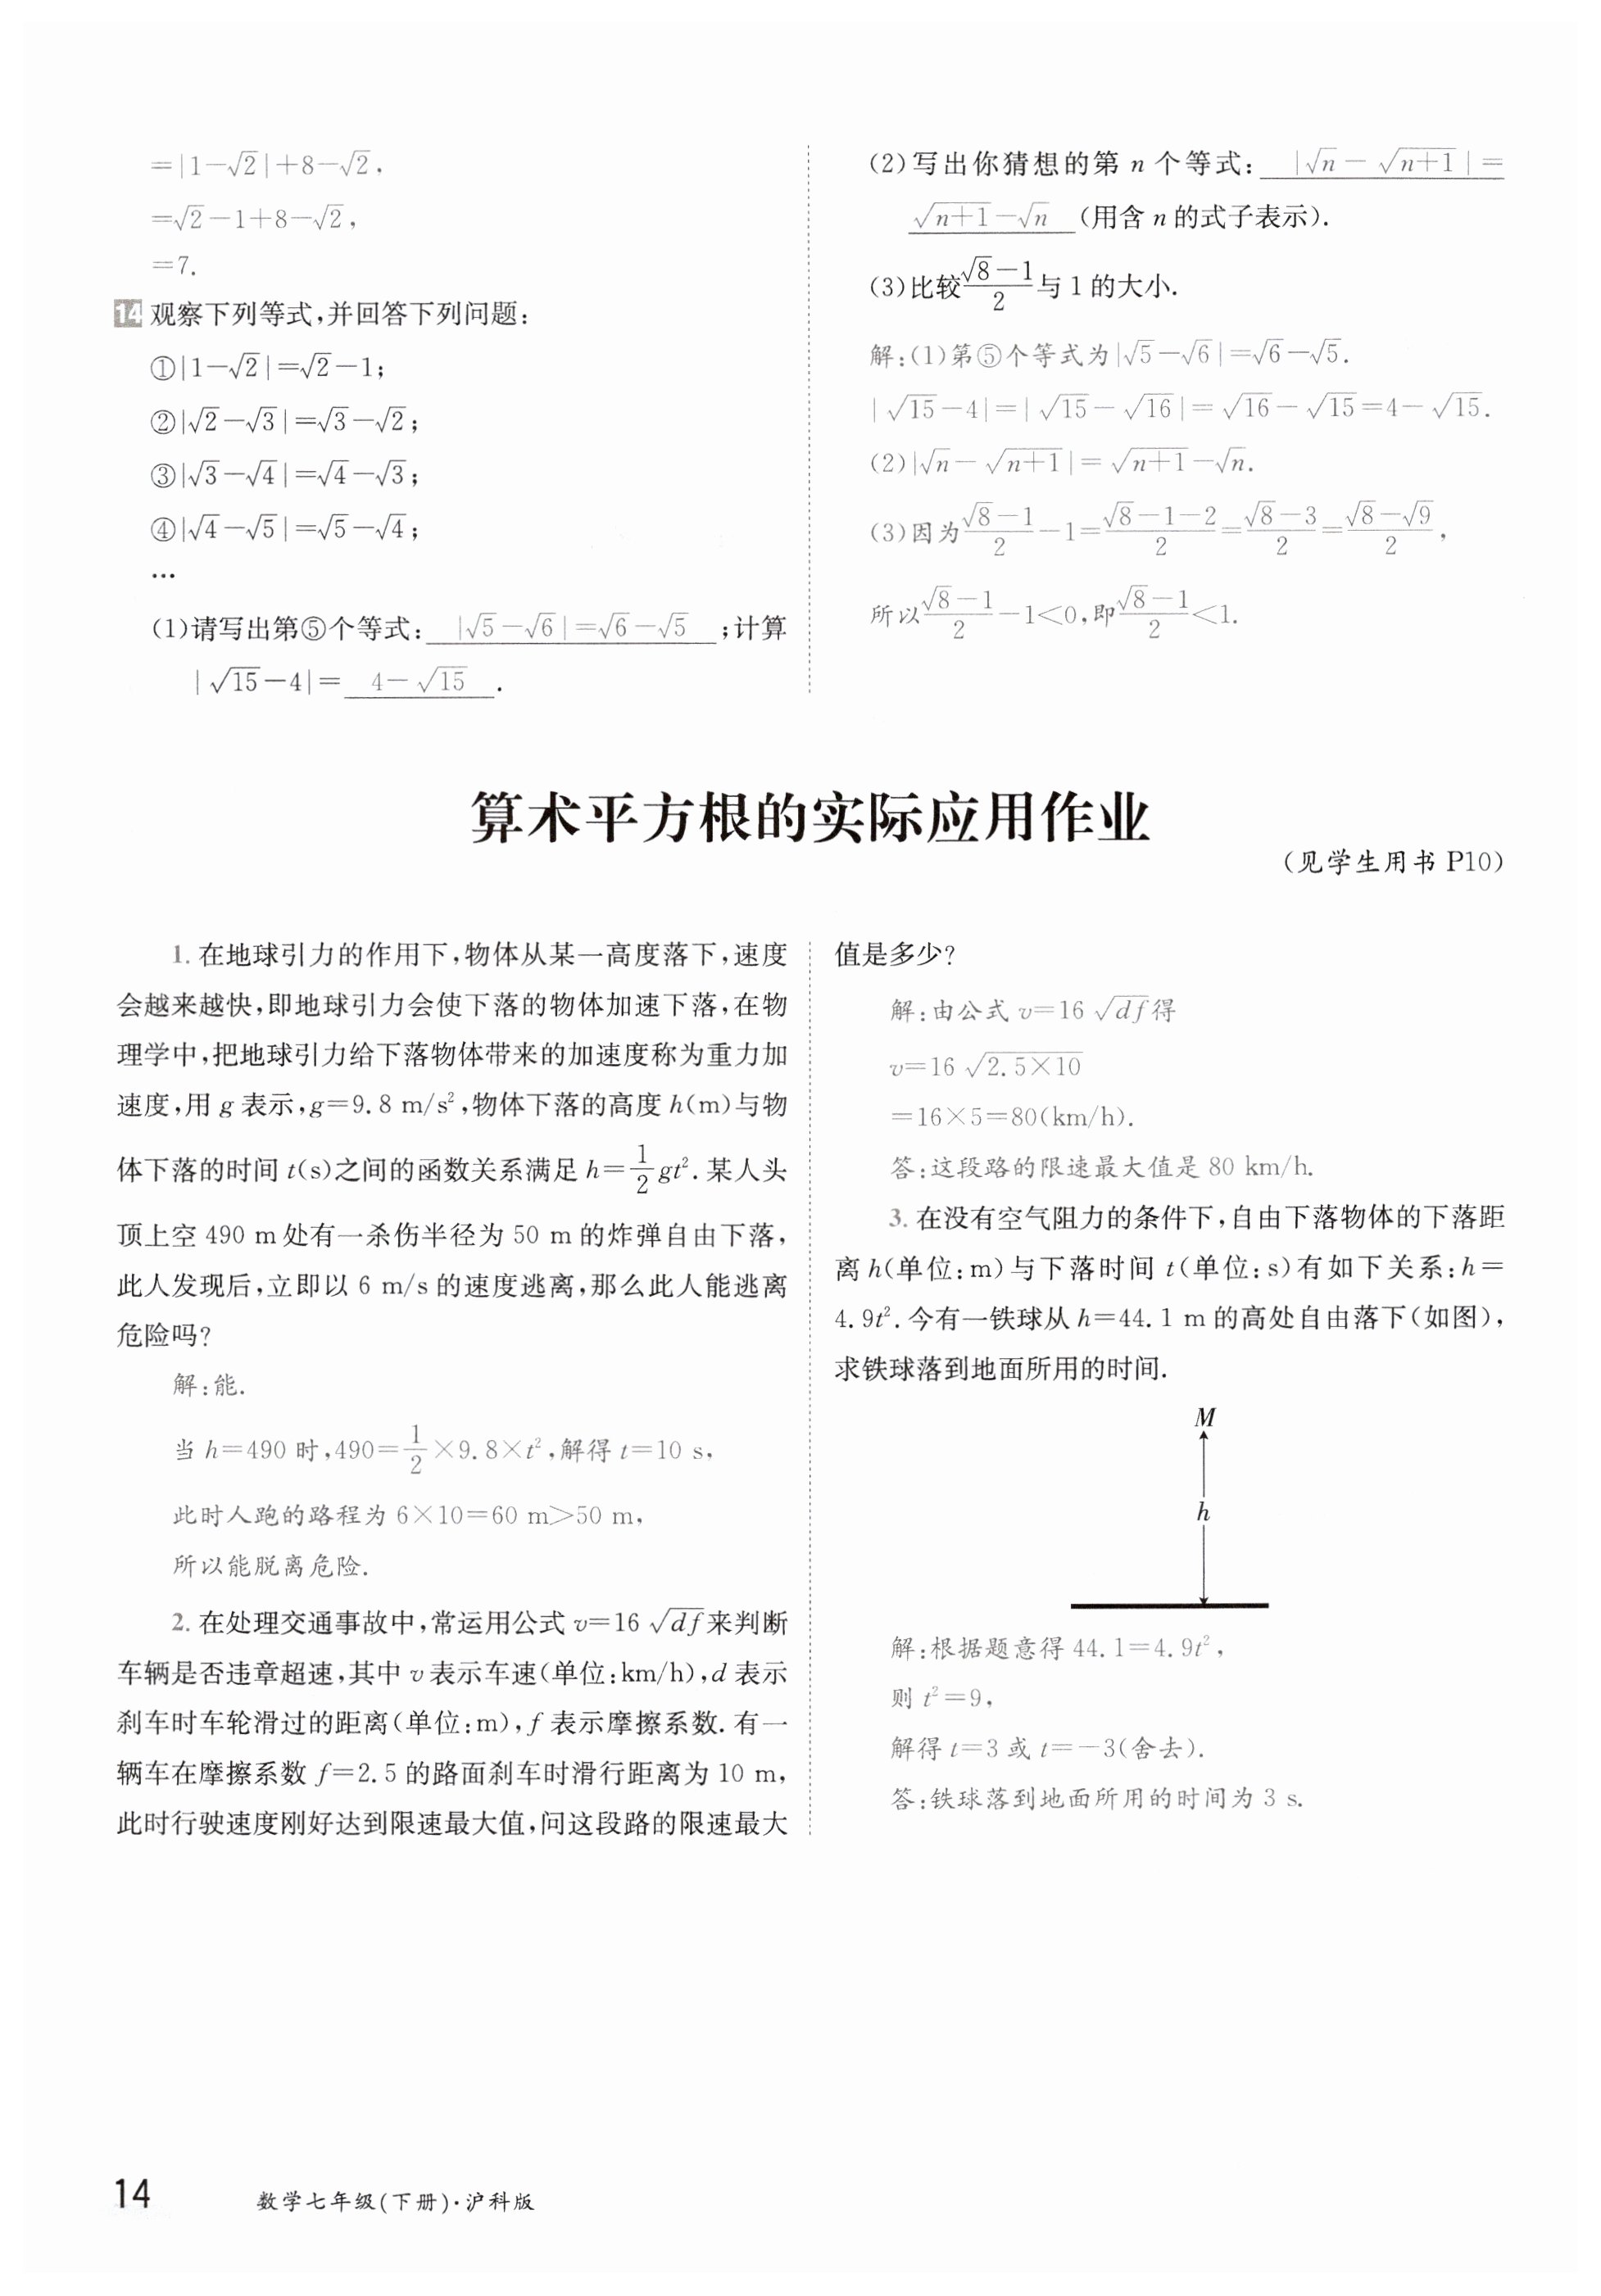 =|1-√2|+8-√2,
=√2-1+8-√2,
=7.
14 观察下列等式,并回答下列问题:
①|1-√2|=√2-1;
②|√2-√3|=√3-√2;
③|√3-√4|=√4-√3;
④|√4-√5|=√5-√4;
…
(1)请写出第⑤个等式: |√5-√6|=√6-√5 ;计算
|√15-4|= 4-√15 .
(2)写出你猜想的第 n 个等式: |√n-√(n+1)|=
√(n+1)-√n (用含 n 的式子表示).
(3)比较(√8-1)/2与 1 的大小.
解:(1)第⑤个等式为|√5-√6|=√6-√5.
|√15-4|=|√15-√16|=√16-√15=4-√15.
(2)|√n-√(n+1)|=√(n+1)-√n.
(3)因为(√8-1)/2-1=(√8-1-2)/2=(√8-3)/2=(√8-√9)/2,
所以(√8-1)/2-1<0,即(√8-1)/2<1.
算术平方根的实际应用作业
(见学生用书 P10)
1. 在地球引力的作用下,物体从某一高度落下,速度
会越来越快,即地球引力会使下落的物体加速下落,在物
理学中,把地球引力给下落物体带来的加速度称为重力加
速度,用 g 表示,g=9.8 m/s²,物体下落的高度 h(m)与物
体下落的时间 t(s)之间的函数关系满足 h=1/2 gt². 某人头
顶上空 490 m 处有一杀伤半径为 50 m 的炸弹自由下落,
此人发现后,立即以 6 m/s 的速度逃离,那么此人能逃离
危险吗?
解:能.
当 h=490 时,490=1/2×9.8×t²,解得 t=10 s,
此时人跑的路程为 6×10=60 m>50 m,
所以能脱离危险.
2. 在处理交通事故中,常运用公式 v=16√df来判断
车辆是否违章超速,其中 v 表示车速(单位:km/h),d 表示
刹车时车轮滑过的距离(单位:m),f 表示摩擦系数. 有一
辆车在摩擦系数 f=2.5 的路面刹车时滑行距离为 10 m,
此时行驶速度刚好达到限速最大值,问这段路的限速最大
值是多少?
解:由公式 v=16√df得
v=16√(2.5×10)
=16×5=80(km/h).
答:这段路的限速最大值是 80 km/h.
3. 在没有空气阻力的条件下,自由下落物体的下落距
离 h(单位:m)与下落时间 t(单位:s)有如下关系:h=
4.9t². 今有一铁球从 h=44.1 m 的高处自由落下(如图),
求铁球落到地面所用的时间.
M
h
解:根据题意得 44.1=4.9t²,
则 t²=9,
解得 t=3 或 t=-3(舍去).
答:铁球落到地面所用的时间为 3 s.
14 数学七年级(下册)·沪科版